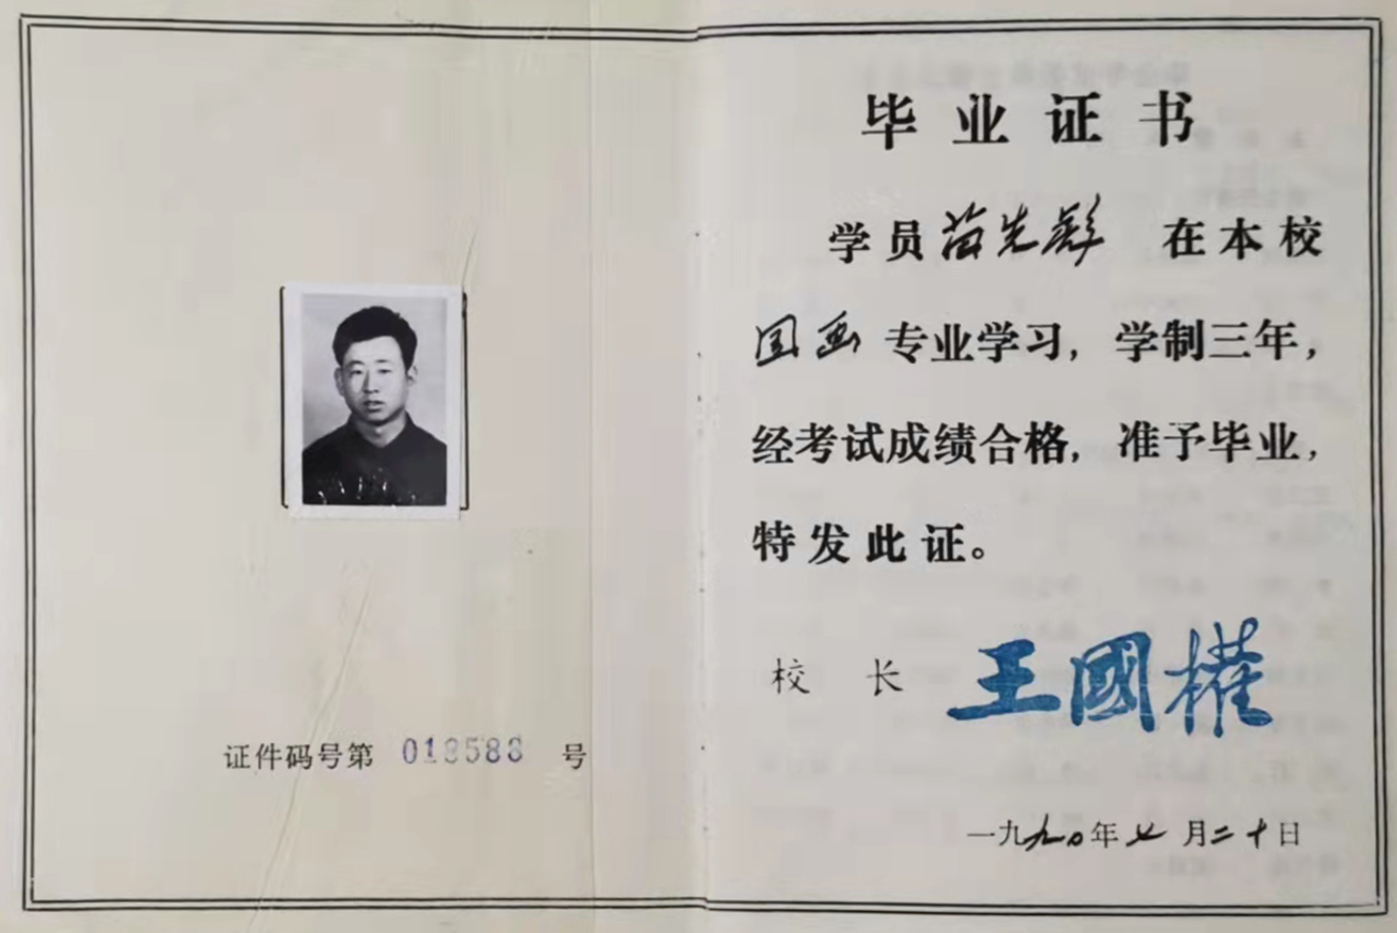 证件码号第 018588 号
毕业证书
学员苗先彪 在本校
国画专业学习，学制三年，
经考试成绩合格，准予毕业，
特发此证。
校长 王國權
一九九〇年七月二十日